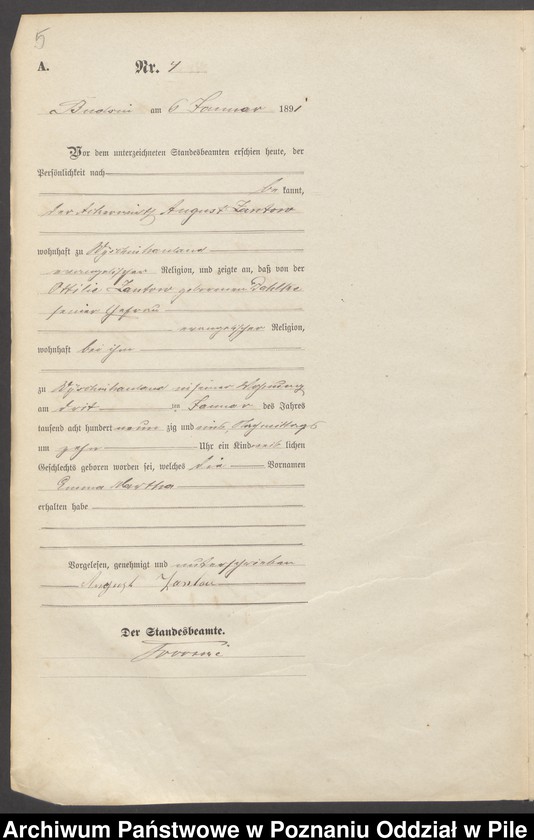 5
A. Nr. 4
Budsin am 6 Januar 1891
Vor dem unterzeichneten Standesbeamten erschien heute, der
Persönlichkeit nach
be kannt,
der Ackerwirth August Zantow
wohnhaft zu
evangelischer Religion, und zeigte an, daß von der
Ottilie Zantow geborenen Dahlke
seiner Ehefrau
evangelischer Religion,
wohnhaft bei ihm
zu in seiner Wohnung
am ten Januar des Jahres
tausend acht hundert neun zig und eins, Nachmittags
um zehn Uhr ein Kind weib lichen
Geschlechts geboren worden sei, welches die Vornamen
Emma Martha
erhalten habe
Vorgelesen, genehmigt und unterschrieben
August Zantow
Der Standesbeamte.
Archiwum Państwowe w Poznaniu Oddział w Pile